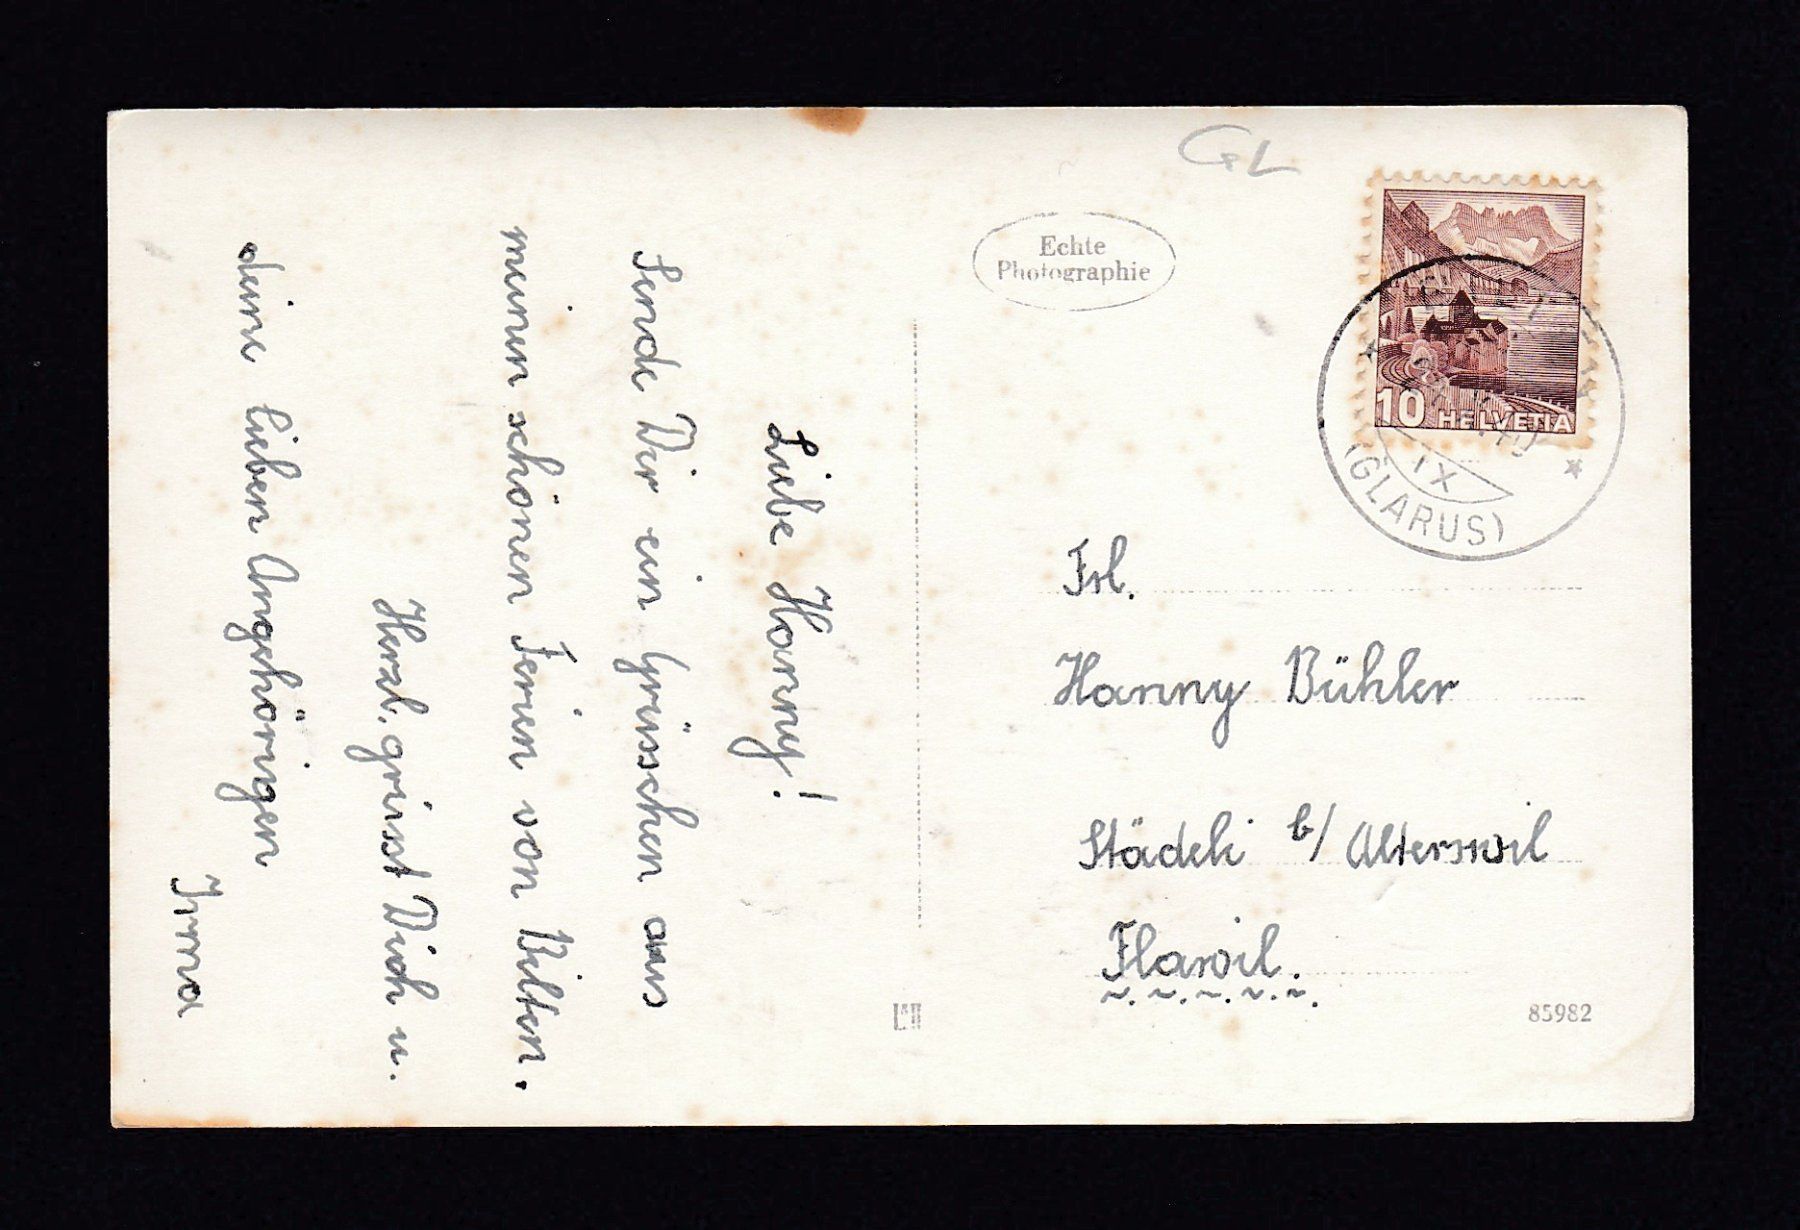 Liebe Hanny!
Sende Dir ein Grüsschen aus
meinen schönen Ferien von Bilten.
Herzl. grüsst Dich u.
deine lieben Angehörigen
Irma
GL
Echte
Photographie
10 HELVETIA
IX
(GLARUS)
Frl.
Hanny Bühler
Städeli b/ Alterswil
Flawil.
85982